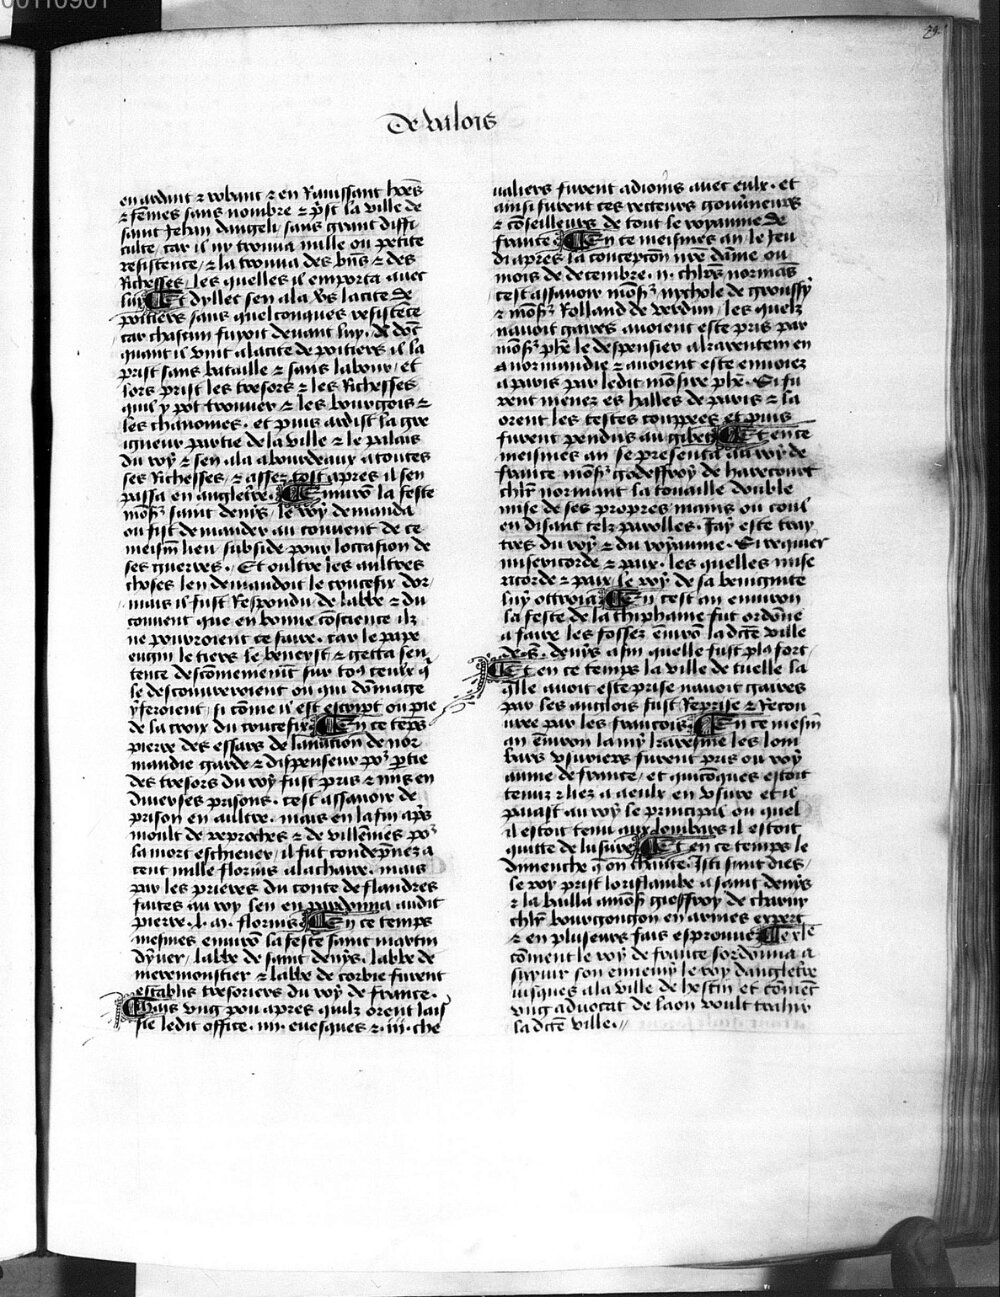 00110901
29.
De valois
en ardant ⁊ robant ⁊ en Rauissant hões
⁊ fẽmes sans nombre ⁊ p̃st la ville de
saint Jehan dangeli sans grant diffi
culte, car il ny trouua nulle ou petite
resistence, ⁊ la trouua des bñs ⁊ des
Richesses, les quelles il emporta auec
luy Et dyllec sen ala v̄s la cite de
poitiers sans quelconques resistẽce
car chascun fuyoit deuant luy. Et dõc
quant il vint a la cite de poitiers il la
prist sans bataille ⁊ sans labour, et
lors prist les tresors ⁊ les Richesses
quil y pot trouuer ⁊ les bourgois ⁊
les chanoines. et puis ardist la gre
igneur partie de la ville ⁊ le palais
du roy ⁊ sen ala a bourdeaux a toutes
ses Richesses, ⁊ assez tost apres il sen
passa en anglet̃re. Enuirõ la feste
mõs̃ saint denys, le roy demanda
ou fist demander au couuent de ce
meism̃ lieu subside pour loccasion de
ses guerres. Et oultre les aultres
choses len demandoit le crucefix dor,
mais il fust Respondu de labbe ⁊ du
couuent que en bonne cõscience ilz
ne pourroient ce faire. car le pape
eugin le tiers le beneyst ⁊ getta sen
tence descõmenimẽt sur toꝰ ceulx q̃
le descouureroient ou qui dõmage
y feroient, si cõme il est escript ou pie
de la croix du crucefix En ce tẽps
pierre des essars de la nacion de nor
mandie garde ⁊ dispenseur poꝰ p̃tie
des tresors du roy fust pris ⁊ mis en
diuerses prisons. cest assauoir de
prison en aultre. mais en la fin ap̃s
moult de reproches ⁊ de villẽnies poꝰ
la mort eschieuer, il fut condẽpnez a
cent mille florins a la chaire. mais
par les prieres du conte de flandres
faites au roy len en pardonna audit
pierre .l. m. florins En ce temps
mesmes enuirõ la feste saint martin
dyuer, labbe de saint denys, labbe de
meremonstier ⁊ labbe de corbie furent
establis tresoriers du roy de france.
Mais vng pou apres quilz orent lais
sie ledit office .iiii. euesques ⁊ .iii. che
ualiers furent adioins auec eulx. et
ainsi furent ces recteurs gouũneurs
⁊ cõseilleurs de tout le royaume de
france En ce meismes an le jeu
di apres la concepcõn nr̃e dãme ou
mois de decembre .ii. chlr̃s normãs
cest assauoir mõs̃ nychole de groussy
⁊ mõs̃ Rolland de verdun, les quelz
nauoit gaires auoient este pris par
mõs̃ phẽ le despensier a karentem en
normandie ⁊ auoient este enuoiez
a paris par ledit mõs̃re phẽ. Si fu
rent menez es halles de paris ⁊ la
orent les testes couppees et puis
furent pendus au gibet Et en ce
meismes an se presenta au roy de
france mõs̃ godeffroy de harecourt
chlr̃ normant la touaille double
mise de ses propres mains ou coul
en disant telz parolles. Jay este tray
tres du roy ⁊ du royaume. Si requier
misericorde ⁊ paix. les quelles mise
ricorde ⁊ paix le roy de sa benignite
luy ottroia En cest an enuiron
la feste de la thiphaine fut ordõne
a faire les fossez enuirõ la dcẽ ville
de .s. denys afin quelle fust pl9 fort.
Et en ce temps la ville de tuelle la
q̃lle auoit este prise nauoit gaires
par les anglois fust Reprise ⁊ Recou
uree par les francois En ce mesm̃
an enuirõ la my karesme les lom
bars vsuriers furent pris ou roy
aume de france, et quicõques estoit
tenuz ⁊ liez a aculx en vsure et il
paiast au roy le principal ou quel
il estoit tenu aux lombars il estoit
quitte de lusure Et en ce temps le
dimenche q̃ on chãte. Isti sunt dies,
le roy prist loriflambe a saint denys
⁊ la bailla a mõs̃ gieffroy de charny
chlr̃ bourgongon en armes expert
⁊ en plusieurs fais esprouue. Cy xle
cõment le roy de france sordonna a
suyuir son ennemy le roy danglet̃re
iusques a la ville de hesdin et cõmẽt
vng aduocat de laon voult trahir
la dcẽ ville.//